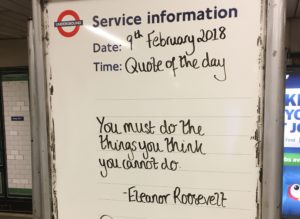 UNDERGROUND
Service information
Date: 9th February 2018
Time: Quote of the day
You must do the
things you think
you cannot do.
-Eleanor Roosevelt